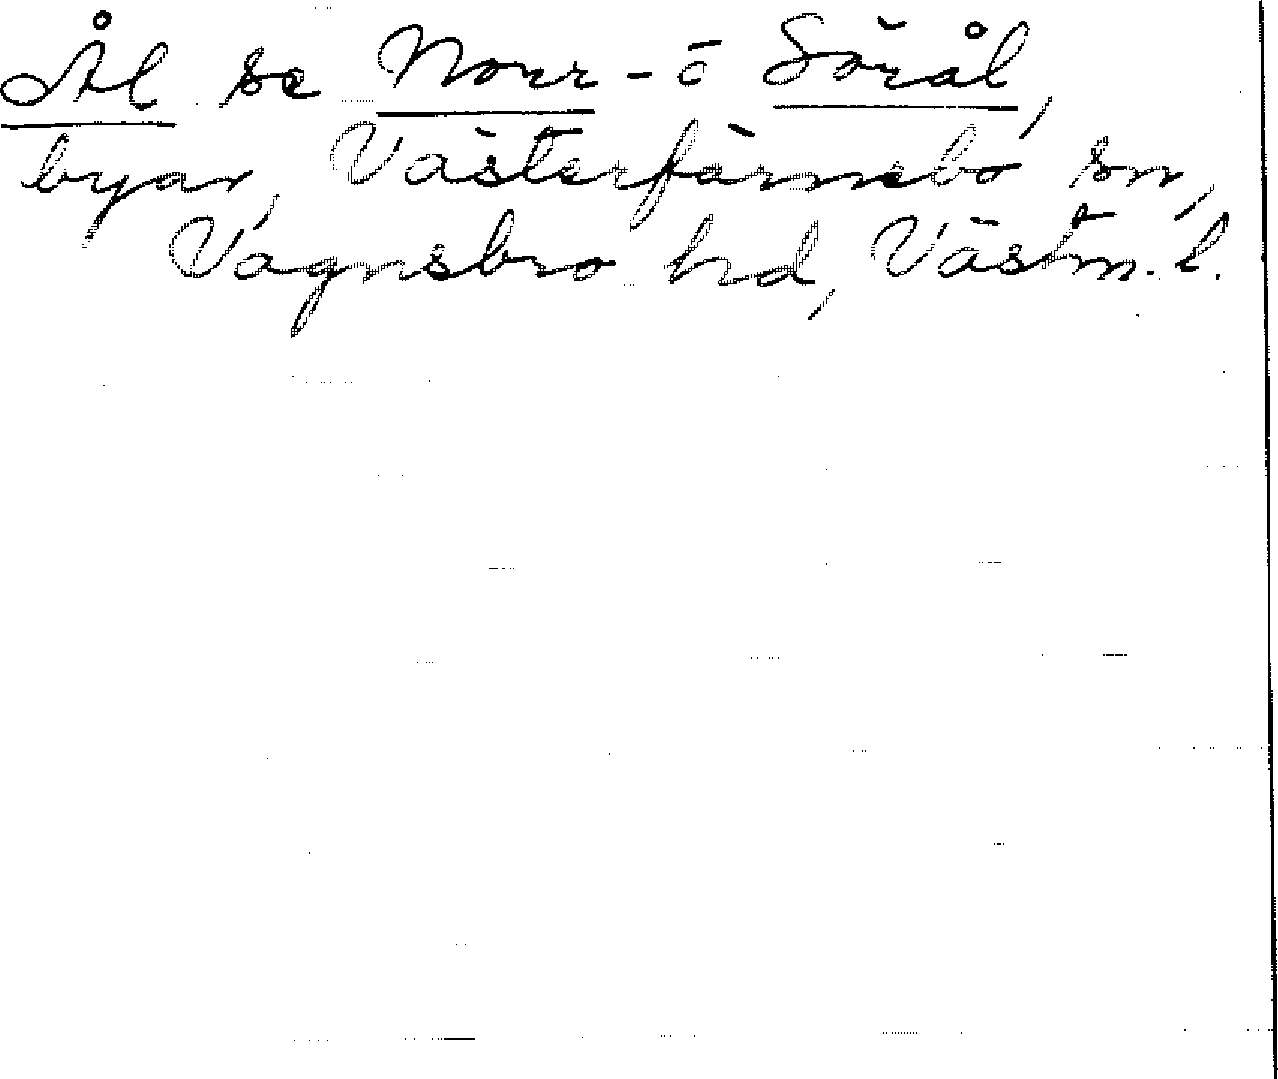 Ål se Norr- o Sörål,
byar, Västerfärnebo sn,
Vagnsbro hd, Västm. l.